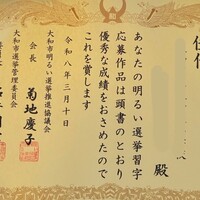 佳作
殿
あなたの明るい選挙習字
応募作品は頭書のとおり
優秀な成績をおさめたので
これを賞します
令和八年三月十日
大和市明るい選挙推進協議会
会長 菊地慶子
大和市選挙管理委員会